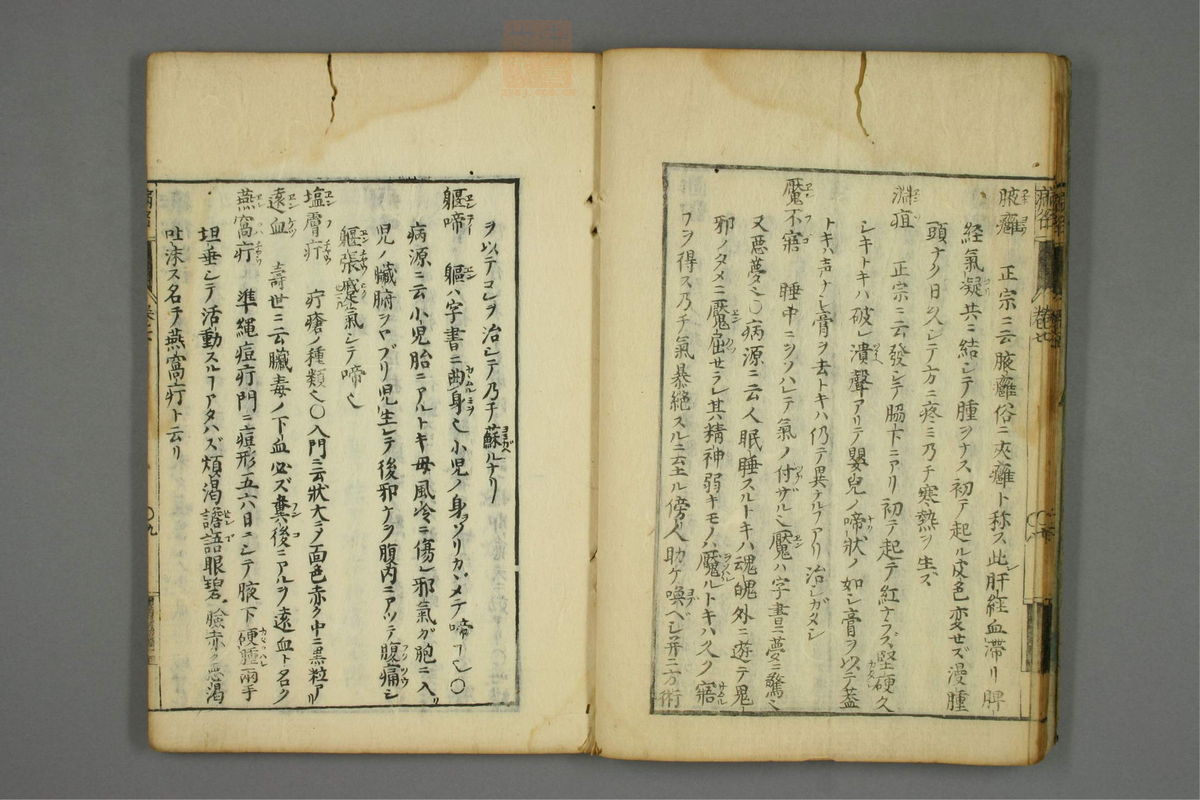 腋癰 正宗ニ云腋癰俗ニ夾癰ト称ス此肝経血滞リ脾
経氣凝共ニ結シテ腫ヲナス初テ起ル皮色変セズ漫腫
頭ナク日久シテ方ニ疼ミ乃チ寒熱ヲ生ズ
渊疽 正宗ニ云發シテ脇下ニアリ初テ起テ紅ナラズ堅硬久
シキトキハ破レ潰聲アリテ嬰児ノ啼状ノ如シ膏ヲ以テ蓋
トキハ声ナシ膏ヲ去トキハ仍テ異ナルヿアリ治シガタシ
魘不寤 睡中ニヲソハレテ氣ノ付ザル也魘ハ字書ニ夢ニ驚也
又惡夢也〇病源ニ云人眠睡スルトキハ魂魄外ニ遊テ鬼
邪ノタメニ魘屈セラレ其精神弱キモノハ魘ルトキハ久ク寤
ヿヲ得ス乃チ氣暴絶スルニ至ル傍人助ケ喚ベシ并ニ方術
ヲ以テコレヲ治シテ乃チ蘇ルナリ
軀啼 軀ハ字書ニ曲身也小児ノ身ソリカヾメテ啼ヿ也〇
病源ニ云小児胎ニアルトキ母風冷ニ傷レ邪氣ガ胞ニ入リ
児ノ臓腑ヲヤブリ児生レテ後邪ケヲ腹内ニアツテ腹痛シ
軀張蹙氣シテ啼也
塩膚疔 疔瘡ノ種類也〇入門ニ云状大ヲ面色赤ク中ニ黒粒アリ
遠血 壽世ニ云臓毒ノ下血必ズ糞後ニアルヲ遠血ト名ク
燕窩疔 準縄痘疔門ニ痘形五六日ニシテ腋下硬腫兩手
坦垂レテ活動スルヿアタハズ煩渇譫語眼碧臉赤ク悪渇
吐沫ス名テ燕窩疔ト云リ